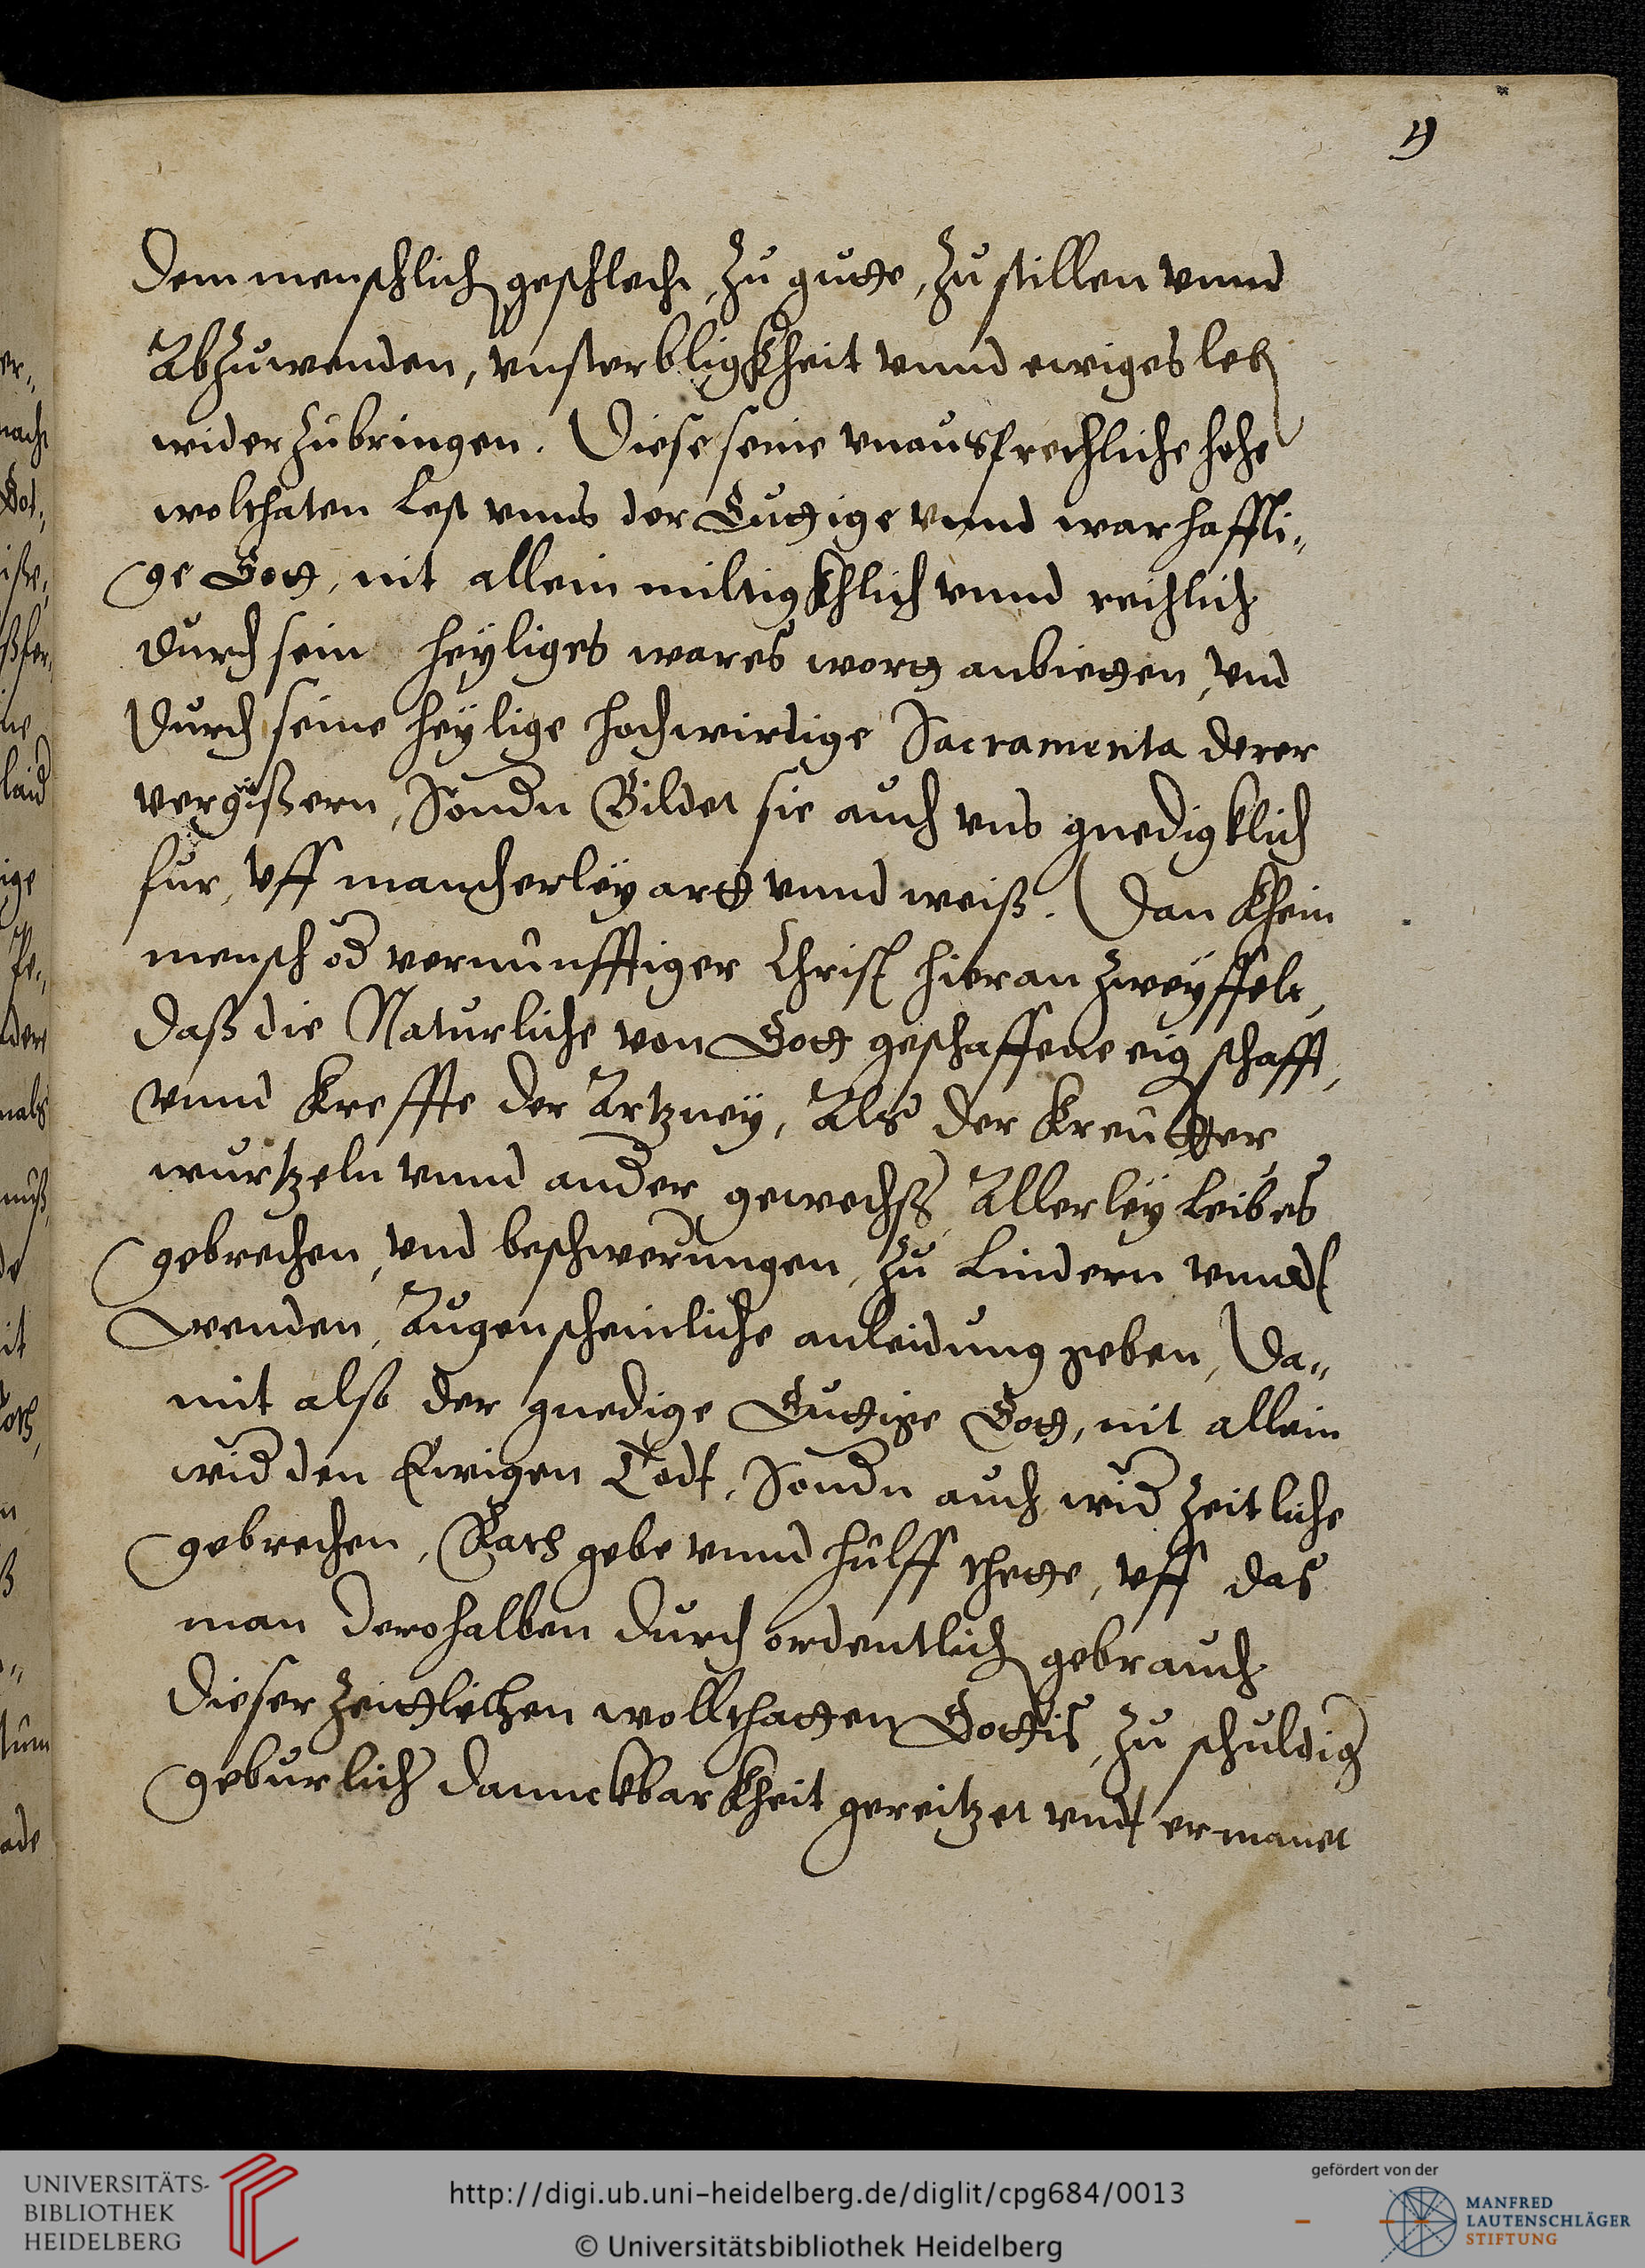 4
Dem menschlich geschlecht, zu gutte, zu stillen vnnd
Abzuwenden, vnsterbligkheit vnnd ewiges leb
wider zubringen. Diese seine vnaussprechliche hohe
wolthaten lest vnns der Guttige vnnd warhaffti-
ge Gott, nit allein miltigkhlich vnnd reichlich
durch sein heyliges wares wortt anbietten, vnd
Durch seine heylige hochwirdige Sacramenta derer
vergwißern, Sondn Bildet sie auch vns gnedigklich
fur, vff mancherley artt vnnd weiß. Dan khein
mensch od vernunfftiger Christ hieran zweyffelt,
daß die Naturliche von Gott geschaffene eigschafft,
vnnd Kreffte der Artzney, Als der Kreutter
wurtzeln vnnd ander gewechß Allerley leibes
gebrechen, vnd beschwerungen, zu Lindern vnnd
wenden, Augenscheinliche anleidung geben, Da-
mit also der gnedige Guttige Gott, nit allein
wid den Ewigen Todt, Sondn auch wid zeitliche
gebrechen, Rath gebe vnnd hulff thette, vff das
man derohalben durch ordentlich gebrauch
dieser zeittlichen wollthatten Gottis, zu schuldig
geburlich dannckbarkheit gereitzet vndt ermanet
er-
nach
Got-
laid
ige
ders
nals
muß
it
ade
UNIVERSITÄTS-
BIBLIOTHEK
HEIDELBERG
http://digi.ub.uni-heidelberg.de/diglit/cpg684/0013
© Universitätsbibliothek Heidelberg
gefördert von der
MANFRED
LAUTENSCHLÄGER
STIFTUNG